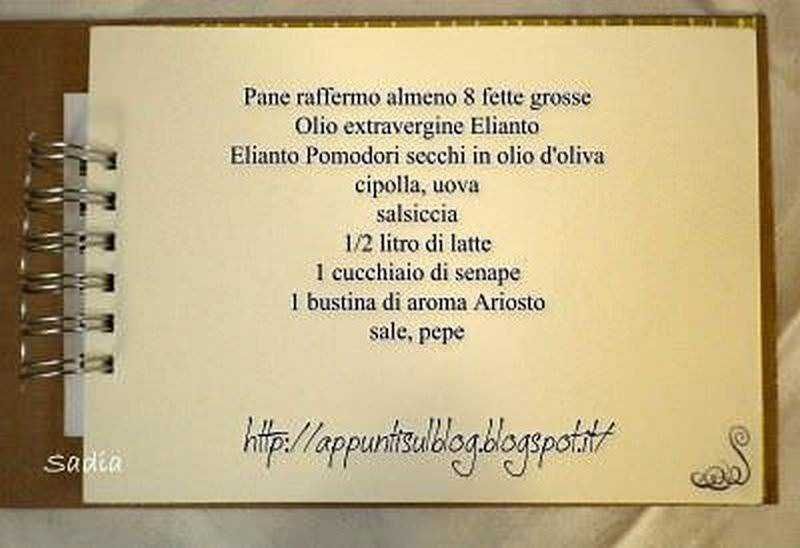 Pane raffermo almeno 8 fette grosse
Olio extravergine Elianto
Elianto Pomodori secchi in olio d'oliva
cipolla, uova
salsiccia
1/2 litro di latte
1 cucchiaio di senape
1 bustina di aroma Ariosto
sale, pepe
http://appuntisulblog.blogspot.it/
Sadia